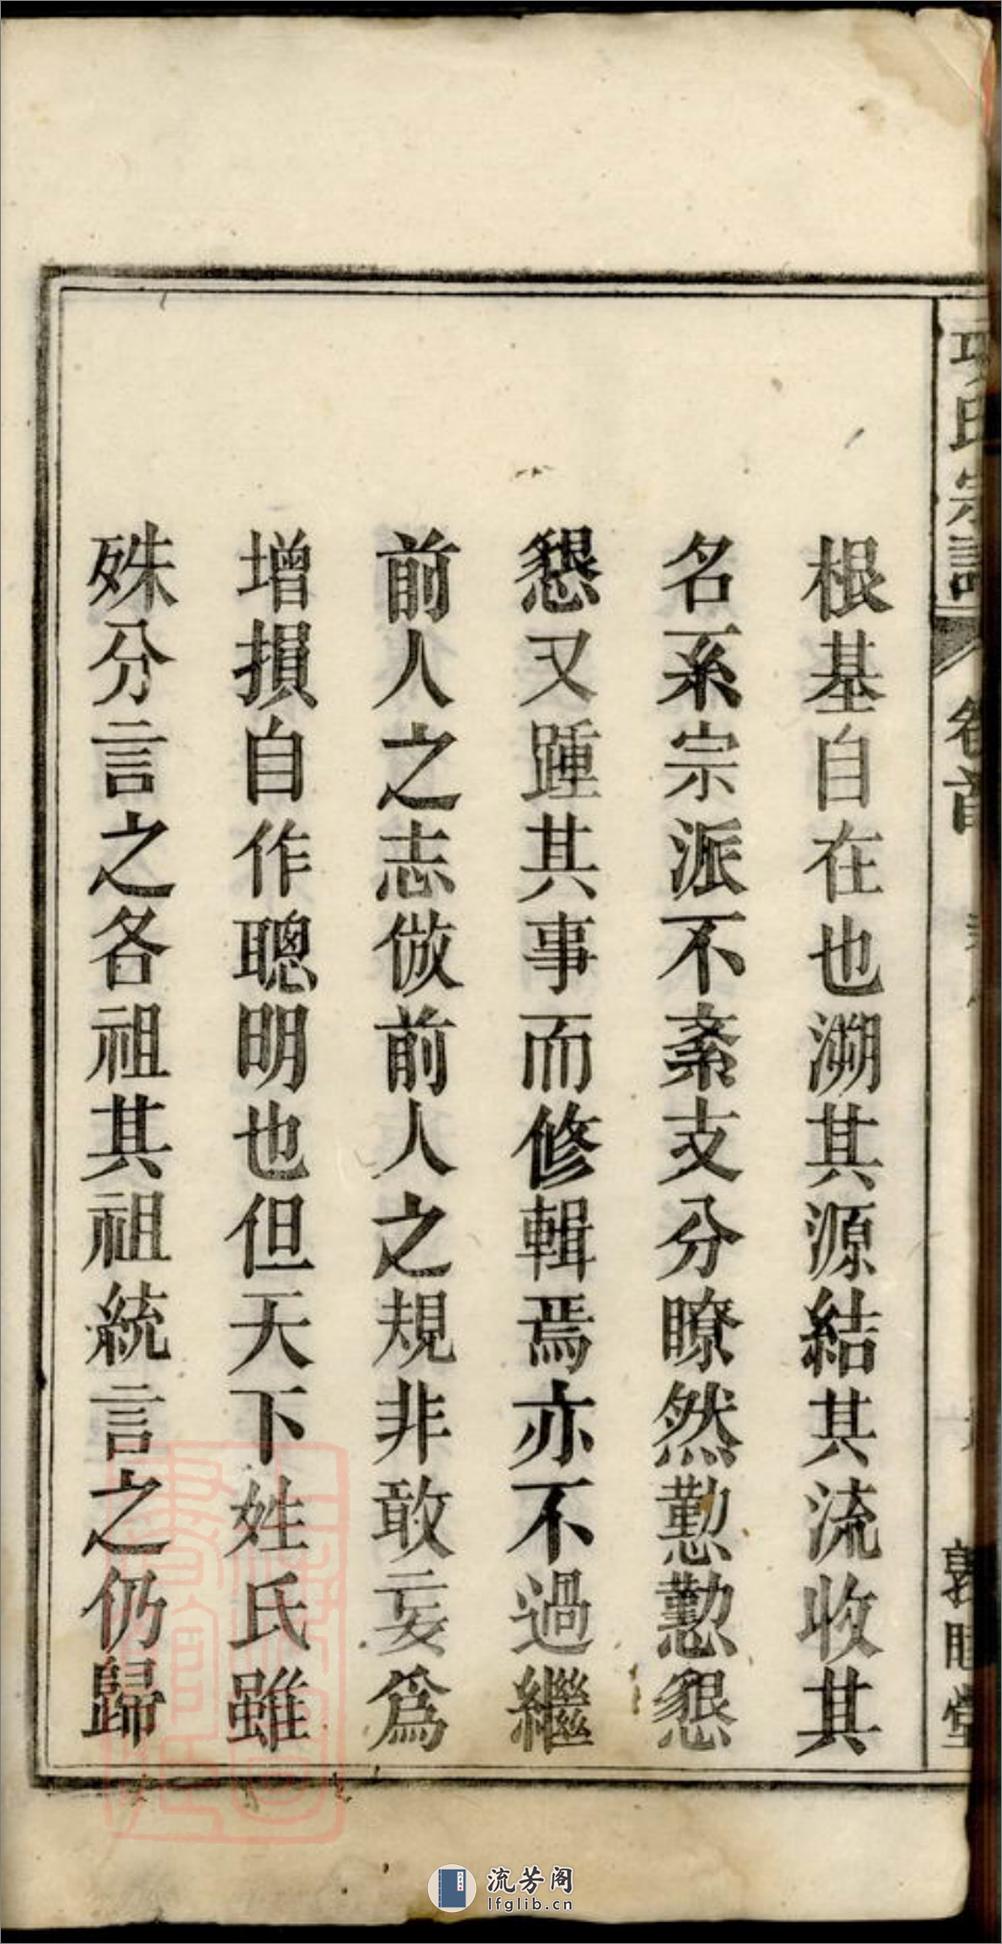 項氏宗譜 卷首 敦睦堂
根基自在也溯其源結其流收其
名系宗派不紊支分瞭然懃懃懇
懇又踵其事而修輯焉亦不過繼
前人之志倣前人之規非敢妄爲
增損自作聰明也但天下姓氏雖
殊分言之各祖其祖統言之仍歸
流芳阁
lfglib.cn